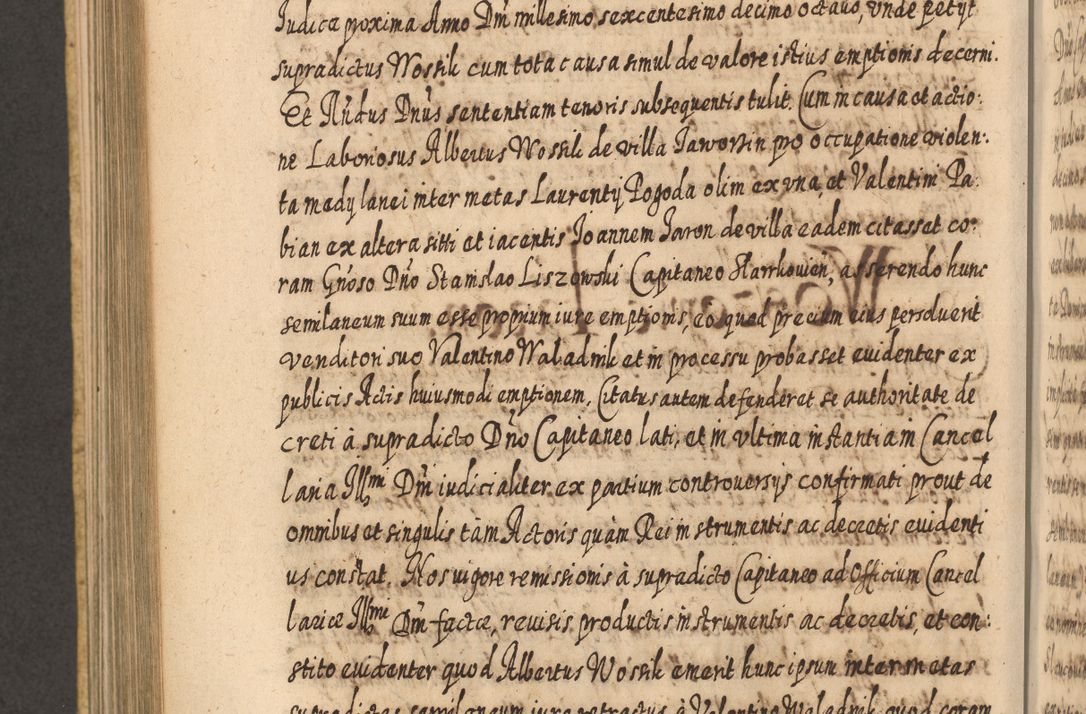 Iudica proxima Anno Dni millesimo sexcentesimo decimo octauo, vnde petyt
supradictus Wossik cum tota causa simul de valore istius emptionis decerni.
Et Rndus Dnus sententiam tenoris subsequentis tulit. Cum in causa et actio:
ne Laboriosus Albertus Wossik de villa Jaworsin pro occupatione violen:
ta medy lanei inter metas Laurenty Pogoda olim ex vna, et Valentini Pa:
bian ex altera siti et iacentis Joannem Jaron de villa eadem citasset co:
ram Gnoso Dno Stanislao Liszowski Capitaneo Slawkouien, asserendo hunc
semilaneum suum esse proprium iure emptionis, eo quod precium eius persoluerit
venditori suo Valentino Waladnik et in processu probasset euidenter ex
publicis Actis huiusmodi emptionem, Citatus autem defenderet se authoritate de
creti à supradicto Dno Capitaneo lati, et in vltima instantiam Cancel
laria Illmi Dni iudicialiter ex partium controuersys confirmati prout de
omnibus et singulis tàm Actoris quàm Rei instrumentis ac decretis euidenti
us constat. Nos vigore remissionis à supradicto Capitaneo ad Officium Cancel
lariæ Illmi Dni factæ, reuisis productis instrumentis ac decretis, et con:
stito euidenter quod Albertus Wossik emerit hunc ipsum inter metas
supradictas semilaneum iure retractus à Valentino Waladnik quod coram